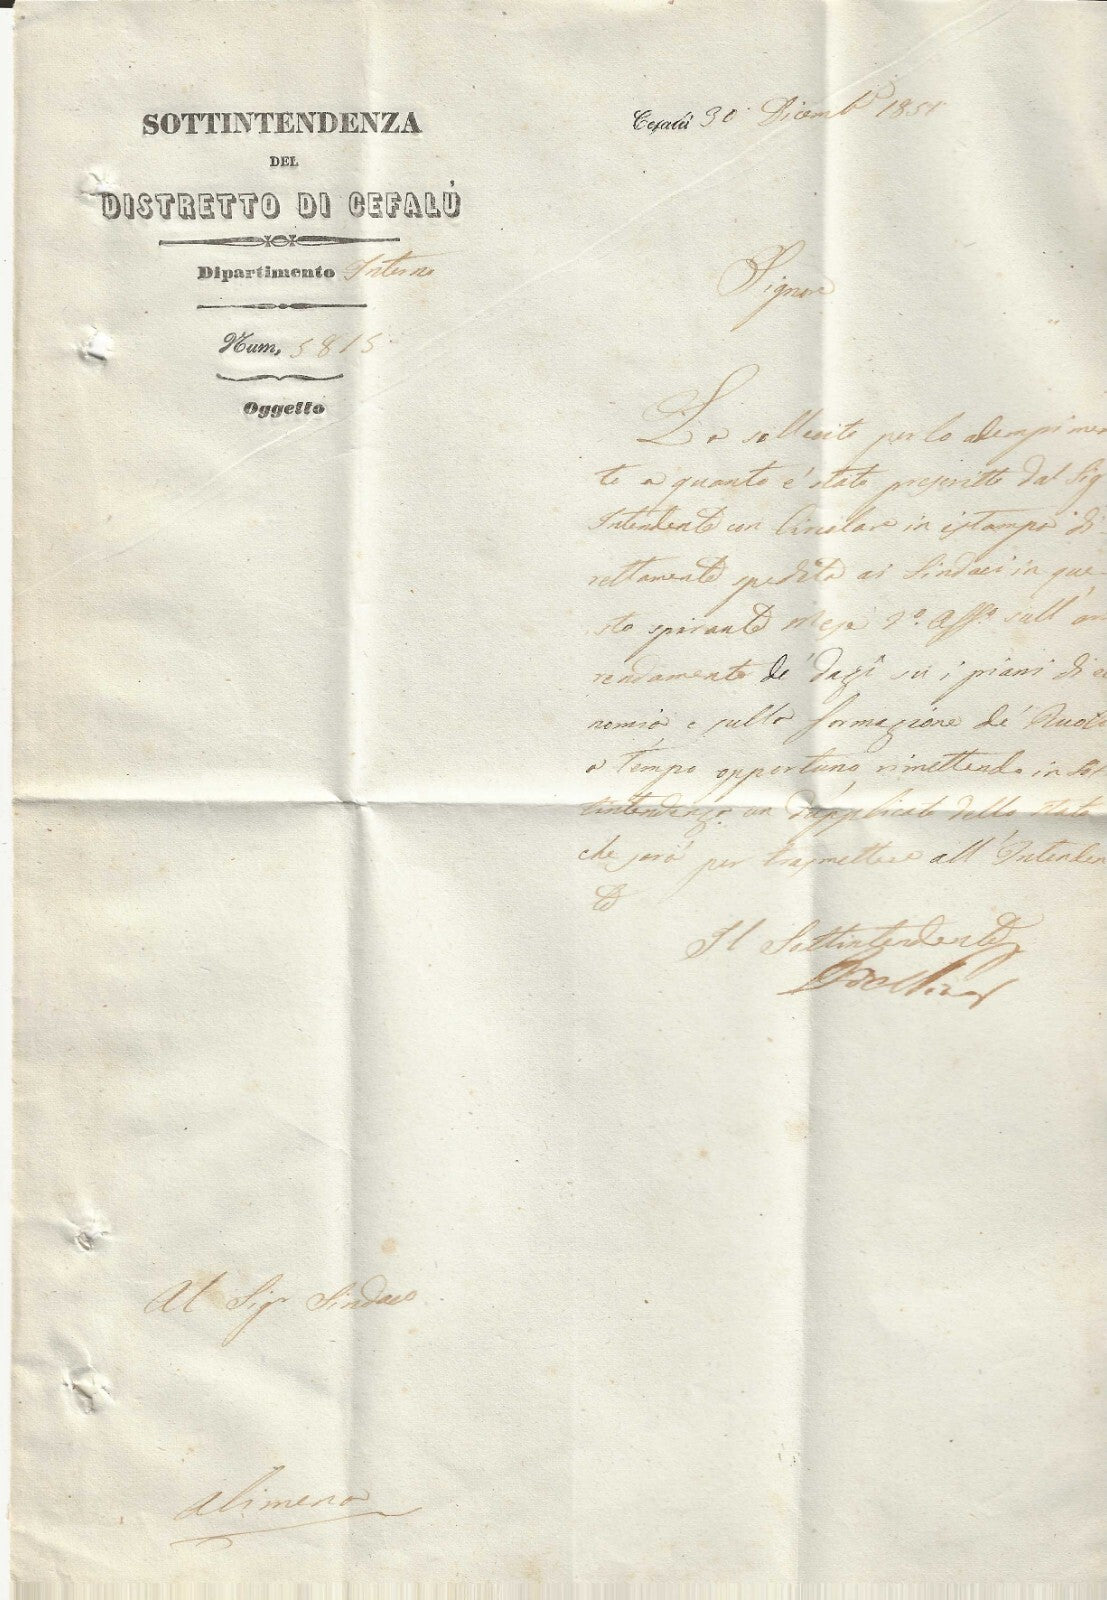 SOTTINTENDENZA
DEL
DISTRETTO DI CEFALÚ
Dipartimento Interno
Num. 5815
Oggetto
Cefalù 30 Dicemb. 1851
Signore
La sollecito per lo adempimen
to a quanto è stato prescritto dal Sig
Intendente con Circolare in istampa di
rettamente spedita ai Sindaci in que
sto spirante Mese 2º. Aff.º sull'
rendamento de' dazî su i piani di
nomia e sulla formazione de'
a tempo opportuno rimettendo in Sot
tintendenza un duplicato dello stato
che sarà per trasmettere all'Intenden
te
Il Sottintendente
Al Sigr Sindaco
Alimena